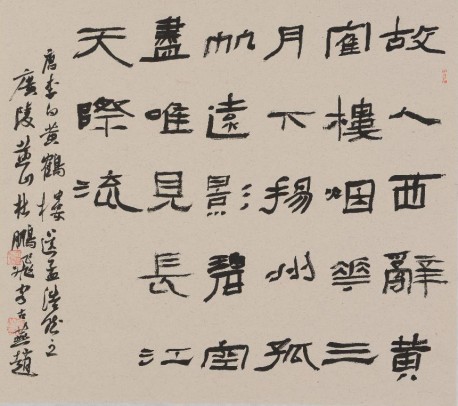 故人西辭黃
隺樓烟華三
月下揚州孤
帆遠影碧空
盡唯見長江
天際流
唐李白黄鶴樓送孟浩然之
廣陵 杜鵬飛書古燕趙